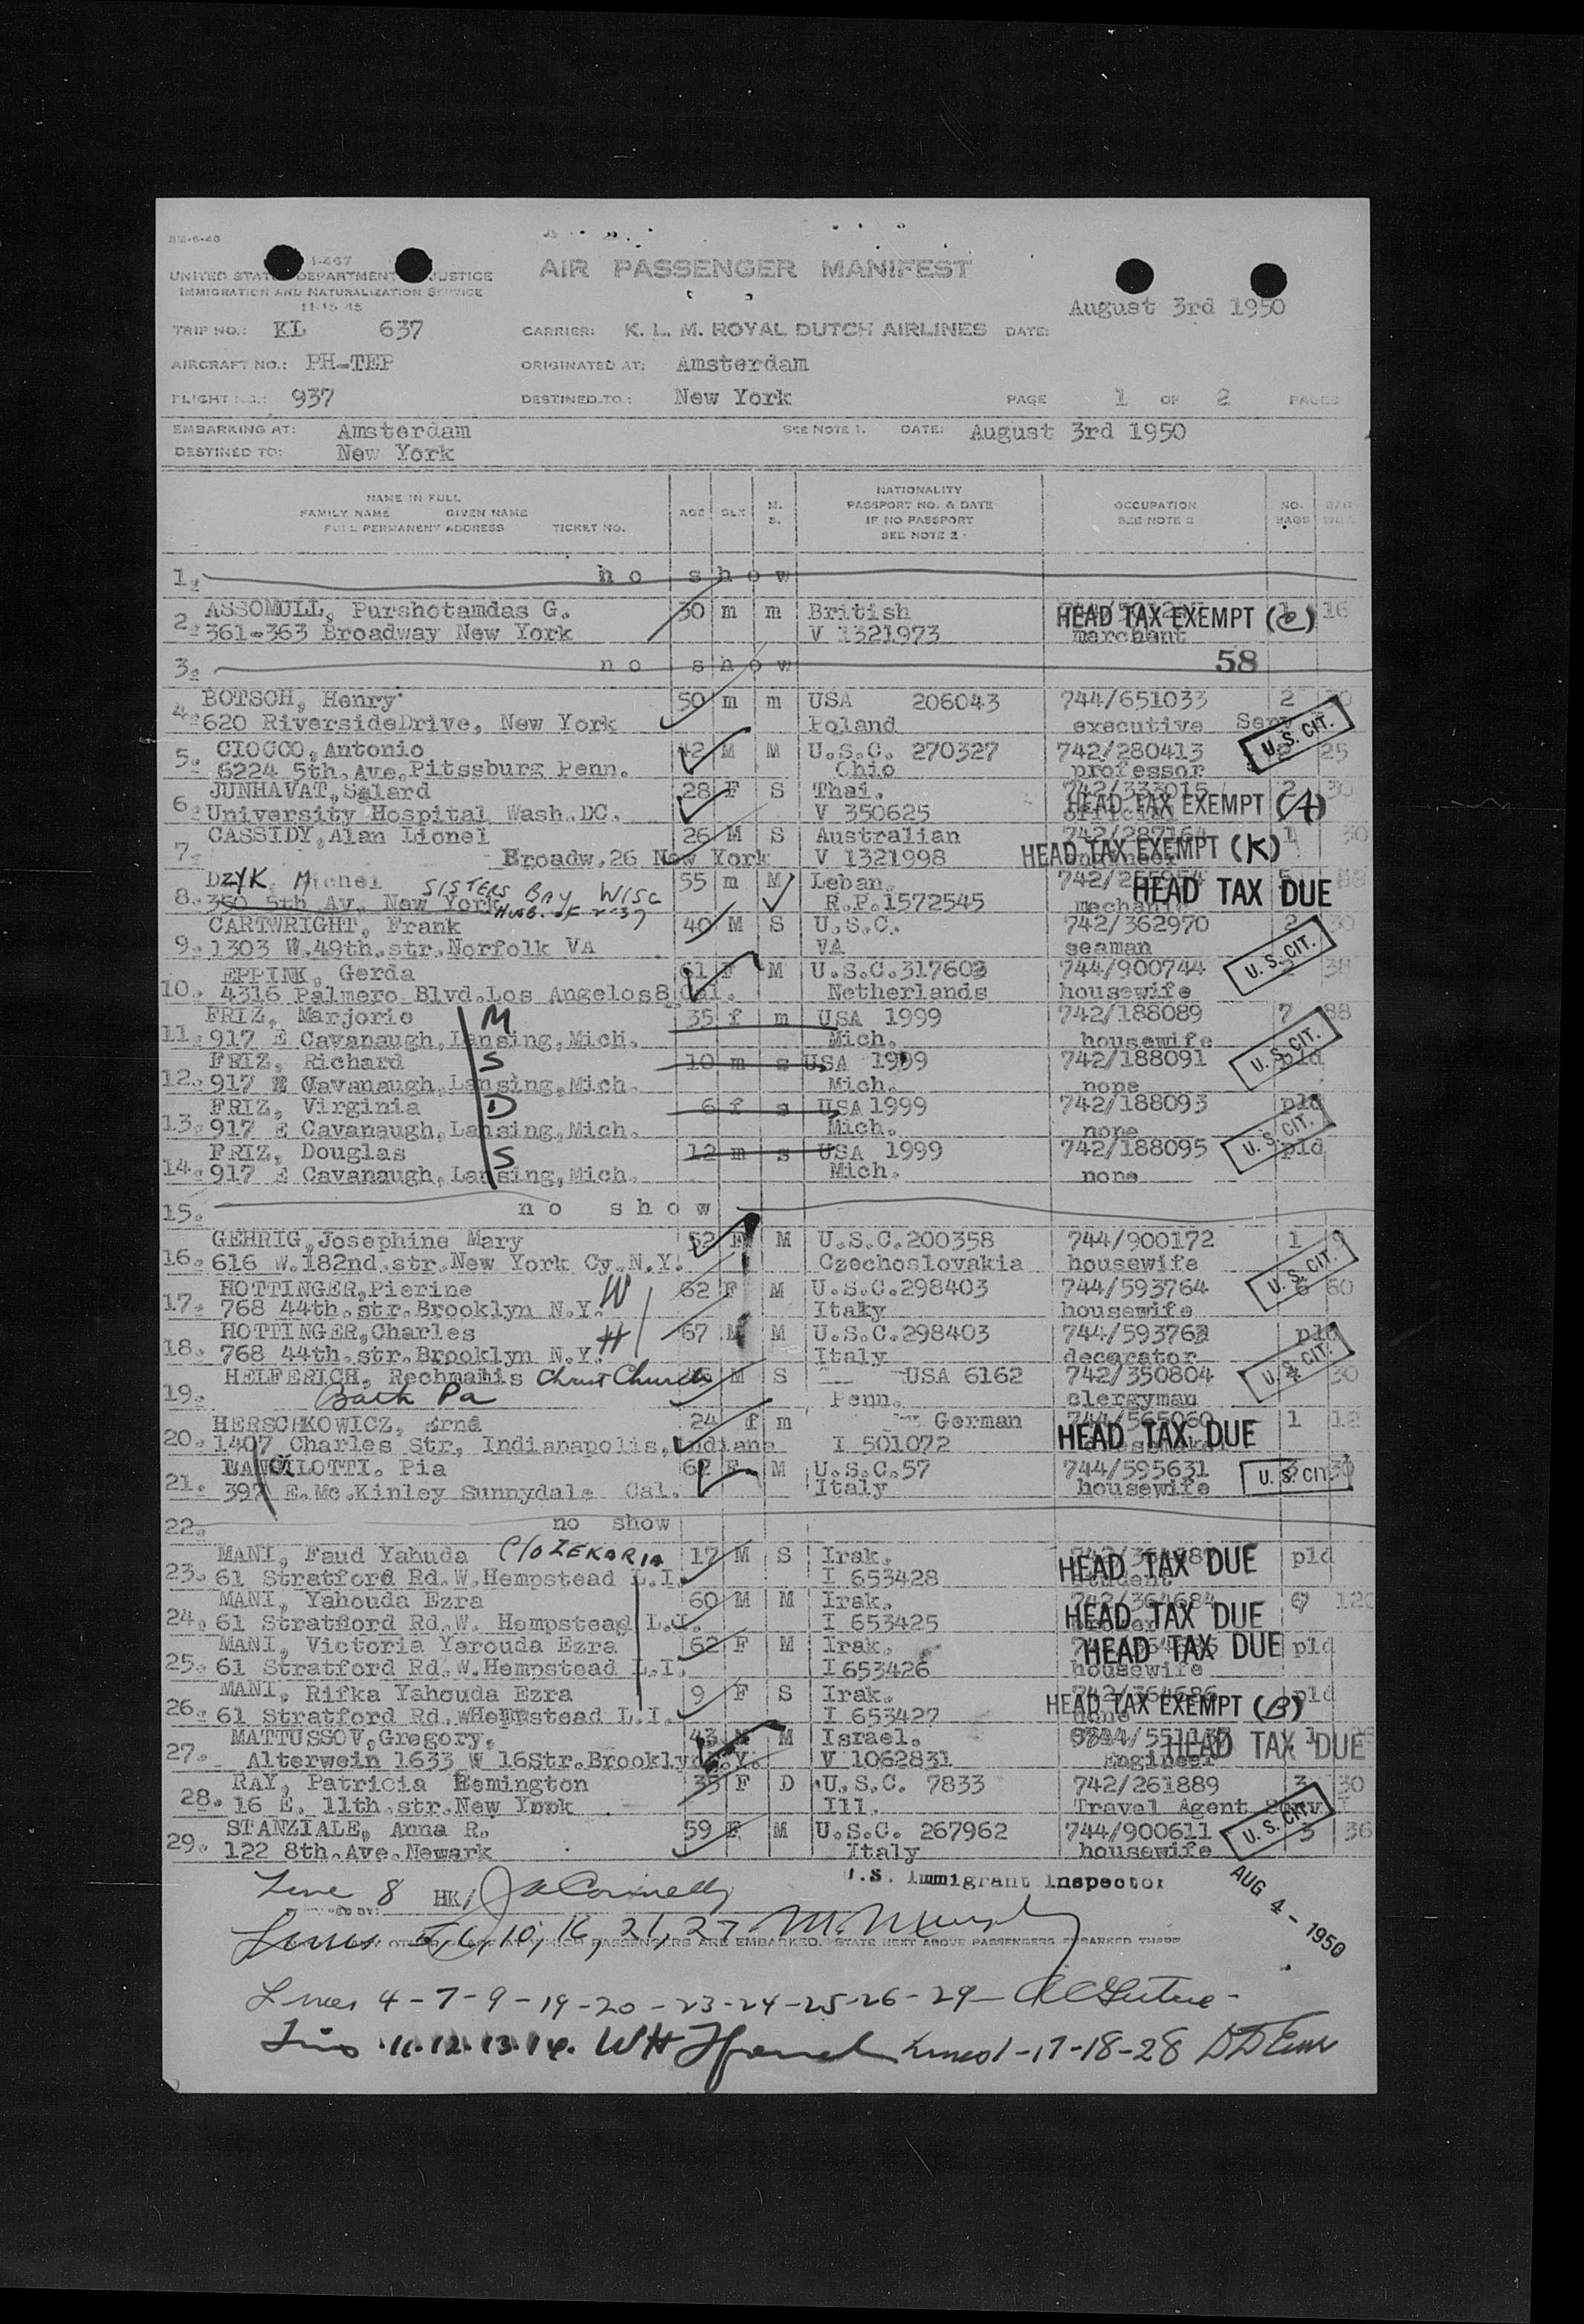 I-467
UNITED STATES DEPARTMENT OF JUSTICE
IMMIGRATION AND NATURALIZATION SERVICE
11-15-45
AIR PASSENGER MANIFEST
August 3rd 1950
TRIP NO.: KL 637 CARRIER: K. L. M. ROYAL DUTCH AIRLINES DATE:
AIRCRAFT NO.: PH-TEP ORIGINATED AT: Amsterdam
FLIGHT NO.: 937 DESTINED TO: New York PAGE 1 OF 2 PAGES
EMBARKING AT: Amsterdam SEE NOTE 1. DATE: August 3rd 1950
DESTINED TO: New York
NAME IN FULL
FAMILY NAME GIVEN NAME
FULL PERMANENT ADDRESS TICKET NO.
AGE SEX M. S.
NATIONALITY
PASSPORT NO. & DATE
IF NO PASSPORT
SEE NOTE 2
OCCUPATION
SEE NOTE 2
NO. BAGS
1. no show
ASSOMULL, Purshotamdas G. 30 m m British HEAD TAX EXEMPT (C) 1 16
2. 361-363 Broadway New York V 1321973 merchant
3. no show 58
BOTSCH, Henry 50 m m USA 206043 744/651033 2 30
4. 620 RiversideDrive, New York Poland executive Serv
5. CIOCCO, Antonio 42 M M U.S.C. 270327 742/280413 U.S. CIT. 25
6224 5th.Ave.Pitssburg Penn. Ohio professor
JUNHAVAT, Salard 28 F S Thai. 742/333015 2 30
6. University Hospital Wash.DC. V 350625 official HEAD TAX EXEMPT (A)
CASSIDY, Alan Lionel 26 M S Australian 742/287164 1 30
7. Broadw.26 New York V 1321998 engineer HEAD TAX EXEMPT (K)
DZYK, Michel SISTERS BAY WISC 55 m M Leban. HEAD TAX DUE
8. 350 5th Av. New York Husb. of R-37 R.P.1572545 mechanic
CARTWRIGHT, Frank 40 M S U.S.C. 742/362970 2 30
9. 1303 W.49th.str.Norfolk VA VA seaman
EPPINK, Gerda 61 F M U.S.C.317603 744/900744 U.S. CIT. 2 38
10. 4316 Palmero Blvd.Los Angelos8 Cal. Netherlands housewife
FRIZ, Marjorie M 35 f m USA 1999 742/188089 7 88
11. 917 E Cavanaugh, Lansing, Mich. Mich. housewife
FRIZ, Richard S 10 m s USA 1999 742/188091 U.S. CIT. pld
12. 917 E Cavanaugh, Lansing, Mich. Mich. none
FRIZ, Virginia D 6 f s USA 1999 742/188093 pld
13. 917 E Cavanaugh, Lansing, Mich. Mich. none U.S. CIT.
FRIZ, Douglas S 12 m s USA 1999 742/188095 pld
14. 917 E Cavanaugh, Lansing, Mich. Mich. none
15. no show
GEHRIG, Josephine Mary 52 F M U.S.C.200358 744/900172 1
16. 616 W.182nd.str.New York Cy.N.Y. Czechoslovakia housewife U.S. CIT.
HOTTINGER, Pierine W 62 F M U.S.C.298403 744/593764 6 60
17. 768 44th.str.Brooklyn N.Y. Italy housewife
HOTTINGER, Charles H 67 M M U.S.C.298403 744/593762 pld
18. 768 44th.str.Brooklyn N.Y. Italy decorator U.S. CIT.
HELFERICH, Rechmahis Christ Church M S USA 6162 742/350804 30
19. Bath Pa Penn. clergyman
HERSCHKOWICZ, Erna 24 f m German 744/565060 1 12
20. 1407 Charles Str, Indianapolis, Indiana I 501072 HEAD TAX DUE
LOTTI. Pia 62 F M U.S.C.57 744/595631 3 30
21. 397 E.Mc.Kinley Sunnydale Cal. Italy housewife U.S. CIT.
22. no show
MANI, Faud Yahuda C/o ZEKARIA 17 M S Irak. HEAD TAX DUE pld
23. 61 Stratford Rd.W.Hempstead L.I. I 653428 student
MANI, Yahouda Ezra 60 M M Irak. 742/364684 6 120
24. 61 Stratford Rd.W. Hempstead L.I. I 653425 HEAD TAX DUE
MANI, Victoria Yarouda Ezra 62 F M Irak. HEAD TAX DUE pld
25. 61 Stratford Rd.W.Hempstead L.I. I 653426 housewife
MANI, Rifka Yahouda Ezra 9 F S Irak. 742/364686 pld
26. 61 Stratford Rd.WHempstead L.I. I 653427 none HEAD TAX EXEMPT (B)
MATTUSSOV, Gregory. 43 M M Israel. 1
27. Alterwein 1633 W 16Str.Brooklyn N.Y. V 1062831 Engineer HEAD TAX DUE
RAY, Patricia Remington 35 F D U.S.C. 7833 742/261889 3 30
28. 16 E. 11th.str.New York Ill. Travel Agent Serv
STANZIALE, Anna R. 59 F M U.S.C. 267962 744/900611 U.S. CIT. 3 36
29. 122 8th.Ave.Newark Italy housewife
U.S. Immigrant Inspector
Line 8 HK/
AUG 4 - 1950
Lines 5, 6, 10, 16, 21, 27
Lines 4-7-9-19-20-23-24-25-26-29
Lines 11.12.13.14. Lines 1-17-18-28